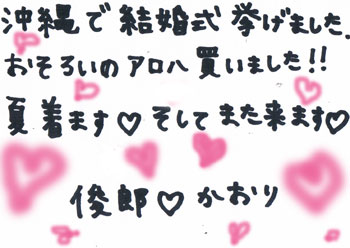 沖縄で結婚式挙げました.
おそろいのアロハ買いました!!
夏着ます♡そしてまた来ます♡
俊郎♡かおり